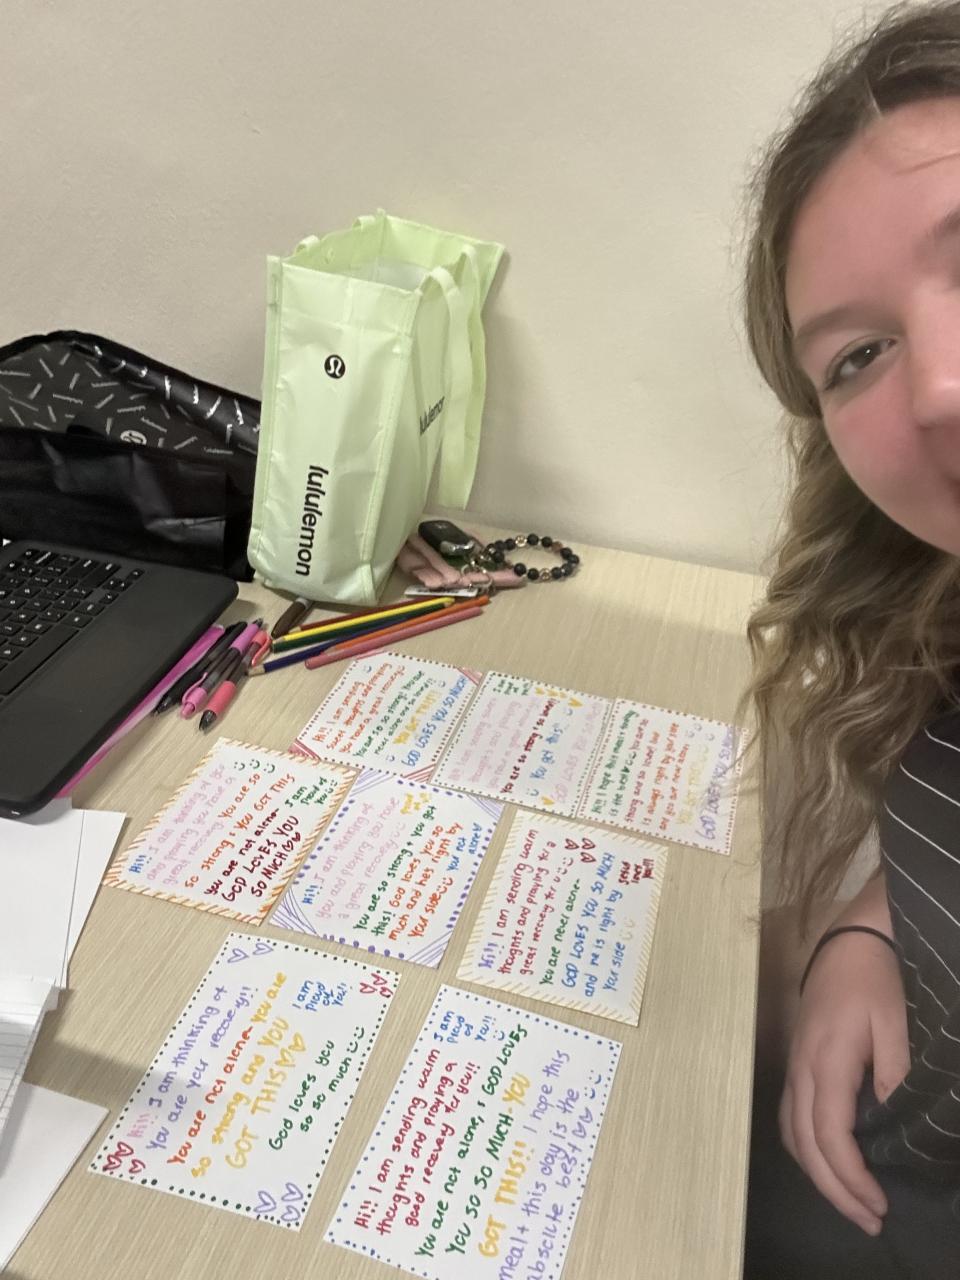 lululemon
lululemon
Hi!! I am sending
sweet thoughts and praying
you have a great recovery.
You are SO SO strong! You are
never alone and so loved!!
YOU GOT THIS!!
GOD LOVES YOU SO MUCH
You are so strong + so loved!
You got this!
Hi!! I hope this meal + day
is the best
God is always right by your side
and you are never alone
Hi!! I am thinking of
and praying you have a
great recovery.
You are so
so strong. YOU GOT THIS
You are not alone-
I am
Proud of
You
GOD LOVES YOU
SO MUCH
Hi!! I am thinking of
you and praying you have
a great recovery
You are so strong + you got
this! God loves you so
much and he's right by
Your side
Your not
alone
Hi!! I am sending warm
thoughts and praying for a
great recovery for u
You are never alone-
GOD LOVES YOU SO MUCH
and he is right by
Your side
Jesus
loves
you!!
Hi!! I am thinking of
You are your recovery!!
You are not alone- You are
so strong and YOU
GOT THIS
I am
proud
of
You!!
God loves you
so so much
Hi!! I am sending warm
thoughts and praying a
good recovery for you!!
I am
proud
of
You!!
You are not alone, & GOD LOVES
YOU SO SO MUCH-YOU
GOT THIS!! I hope this
meal + this day is the
absolute best